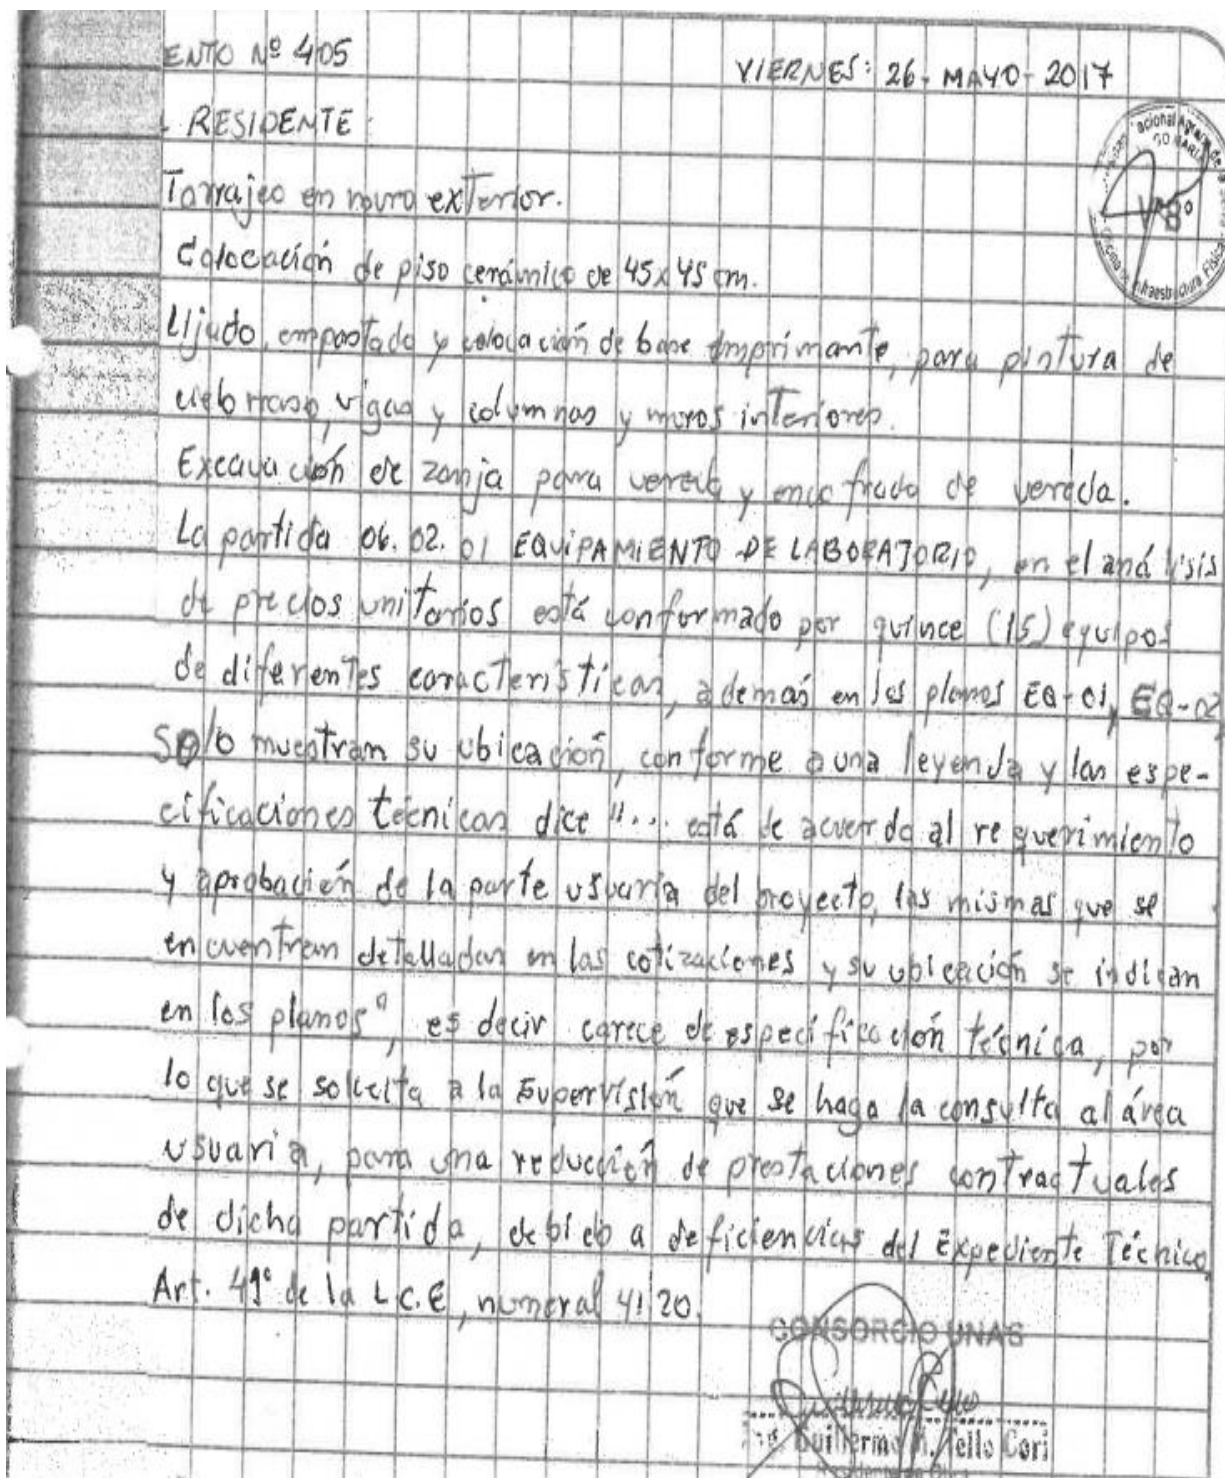 ENTO Nº 405
VIERNES: 26- MAYO- 2017
RESIDENTE:
Tarrajeo en muro exterior.
Colocación de piso cerámico de 45x45 cm.
Lijado, empastado y colocación de base imprimante, para pintura de
cielo raso, vigas y columnas y muros interiores.
Excavación de zanja para vereda y encofrado de vereda.
La partida 06.02.01 EQUIPAMIENTO DE LABORATORIO, en el análisis
de precios unitarios está conformado por quince (15) equipos
de diferentes características, además en los planos EQ-01, EQ-02
Solo muestran su ubicación, conforme a una leyenda y las espe-
cificaciones técnicas dice "... está de acuerdo al requerimiento
y aprobación de la parte usuaria del proyecto, las mismas que se
encuentran detalladas en las cotizaciones y su ubicación se indican
en los planos", es decir carece de especificación técnica, por
lo que se solicita a la Supervisión que se haga la consulta al área
usuaria, para una reducción de prestaciones contractuales
de dicha partida, debido a deficiencias del Expediente Técnico,
Art. 41º de la L.C.E, numeral 41.20.
CONSORCIO UNAS
Ing. Guillermo A. Tello Cori